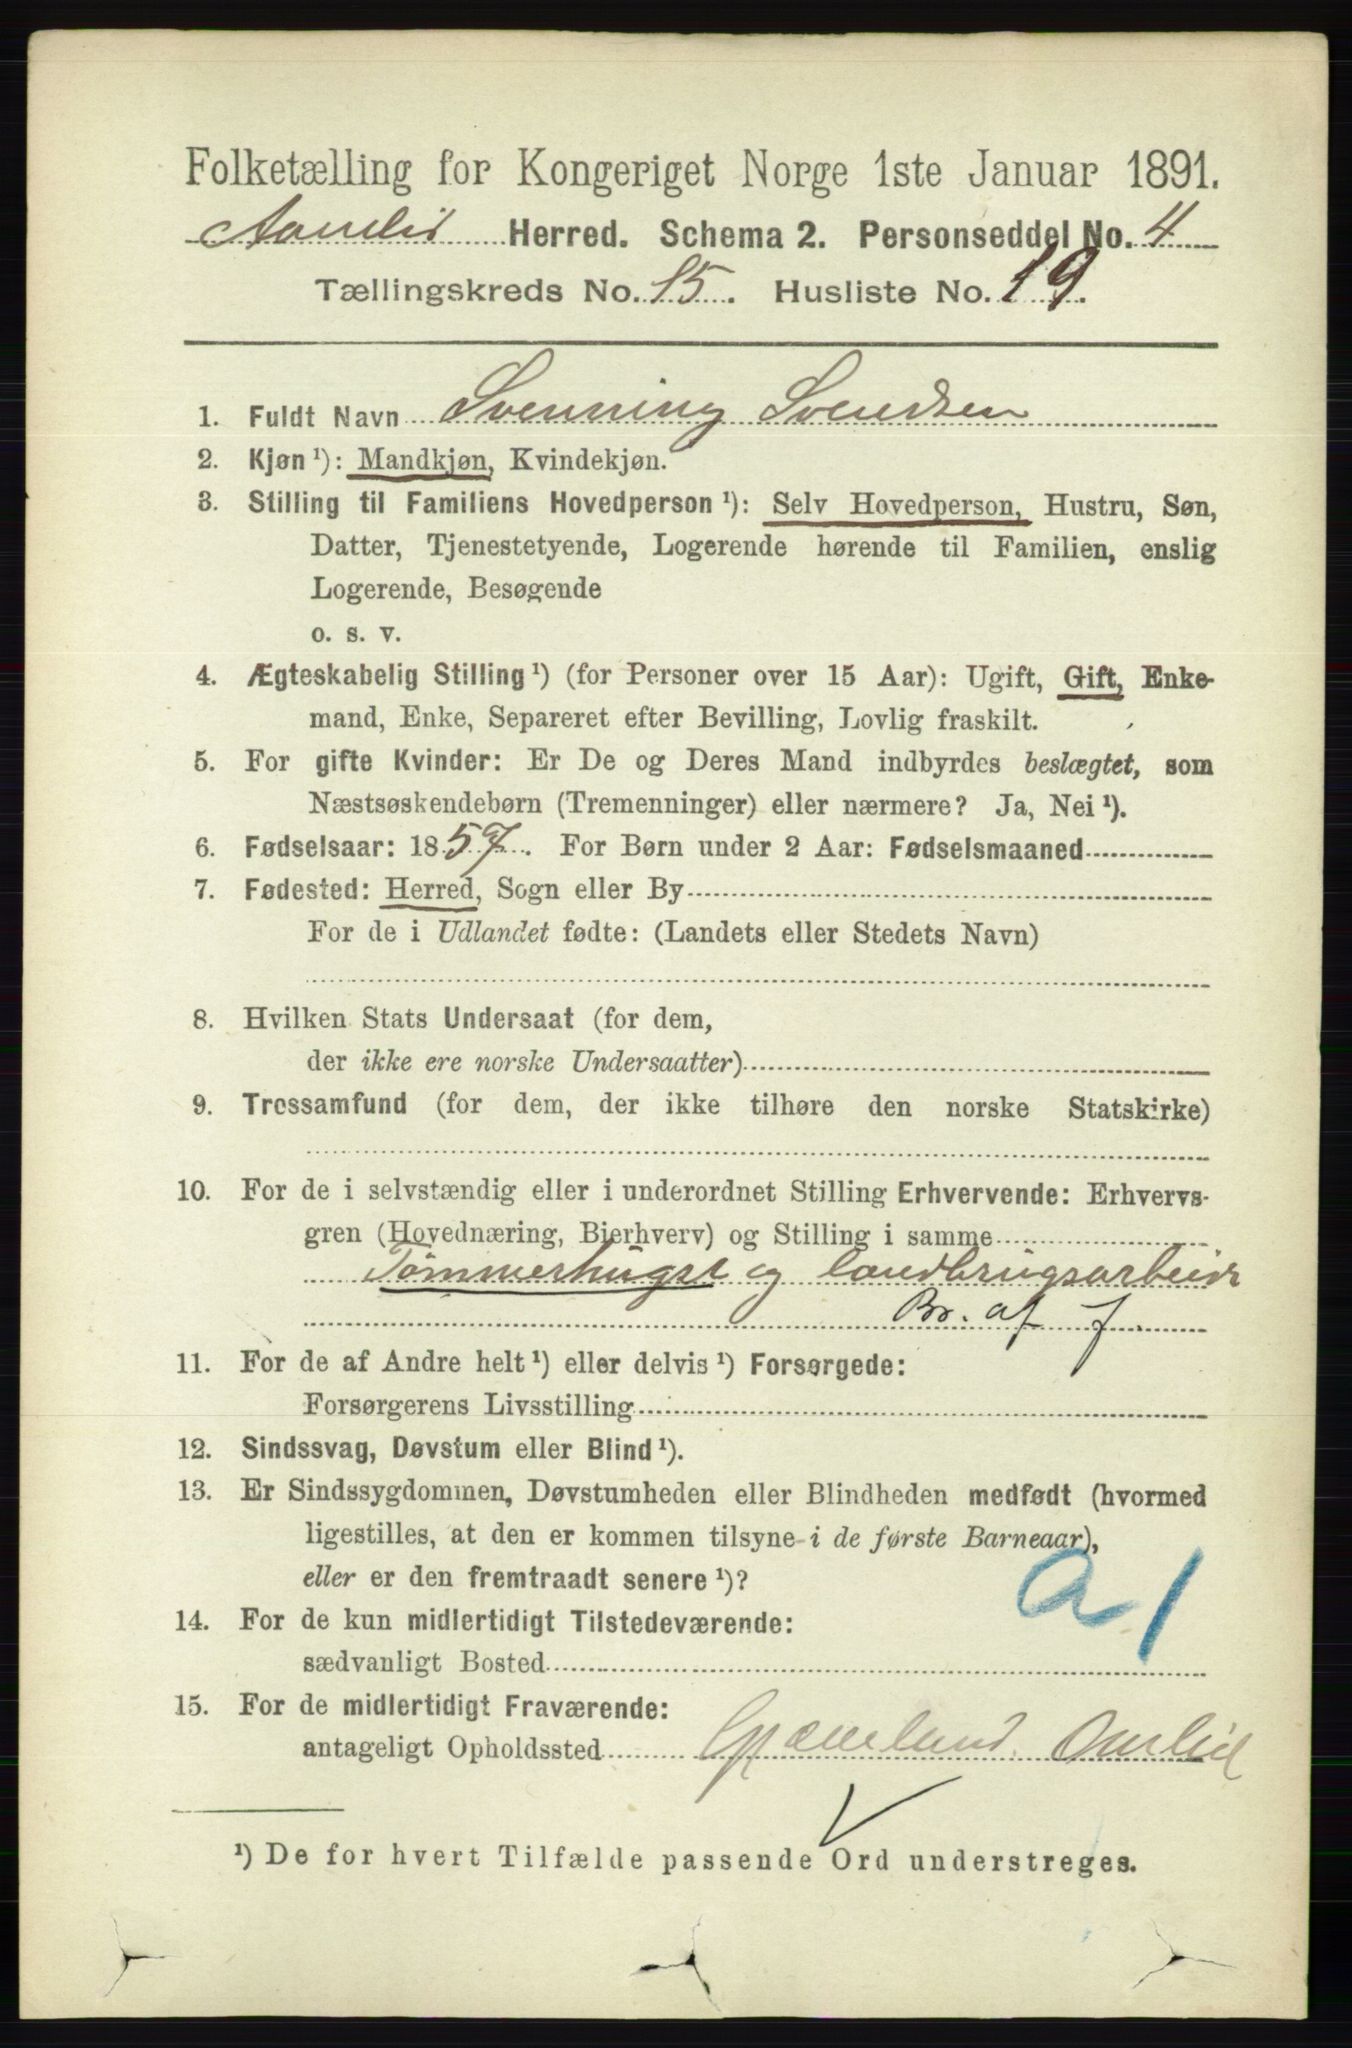 Folketælling for Kongeriget Norge 1ste Januar 1891.
Aamlid Herred. Schema 2. Personseddel No. 4
Tællingskreds No. 15. Husliste No. 19.
1. Fuldt Navn Svenning Svendsen
2. Kjøn ¹): Mandkjøn, Kvindekjøn.
3. Stilling til Familiens Hovedperson ¹): Selv Hovedperson, Hustru, Søn,
Datter, Tjenestetyende, Logerende hørende til Familien, enslig
Logerende, Besøgende
o. s. v.
4. Ægteskabelig Stilling ¹) (for Personer over 15 Aar): Ugift, Gift, Enke-
mand, Enke, Separeret efter Bevilling, Lovlig fraskilt.
5. For gifte Kvinder: Er De og Deres Mand indbyrdes beslægtet, som
Næstsøskendebørn (Tremenninger) eller nærmere? Ja, Nei ¹).
6. Fødselsaar: 1857. For Børn under 2 Aar: Fødselsmaaned
7. Fødested: Herred, Sogn eller By
For de i Udlandet fødte: (Landets eller Stedets Navn)
8. Hvilken Stats Undersaat (for dem,
der ikke ere norske Undersaatter)
9. Trossamfund (for dem, der ikke tilhøre den norske Statskirke)
10. For de i selvstændig eller i underordnet Stilling Erhvervende: Erhvervs-
gren (Hovednæring, Bierhverv) og Stilling i samme
Tømmerhugst og landbrugsarbeide
Br. af J.
11. For de af Andre helt ¹) eller delvis ¹) Forsørgede:
Forsørgerens Livsstilling
12. Sindssvag, Døvstum eller Blind ¹).
13. Er Sindssygdommen, Døvstumheden eller Blindheden medfødt (hvormed
ligestilles, at den er kommen tilsyne i de første Barneaar),
eller er den fremtraadt senere ¹)?
a 1
14. For de kun midlertidigt Tilstedeværende:
sædvanligt Bosted
15. For de midlertidigt Fraværende:
antageligt Opholdssted
¹) De for hvert Tilfælde passende Ord understreges.